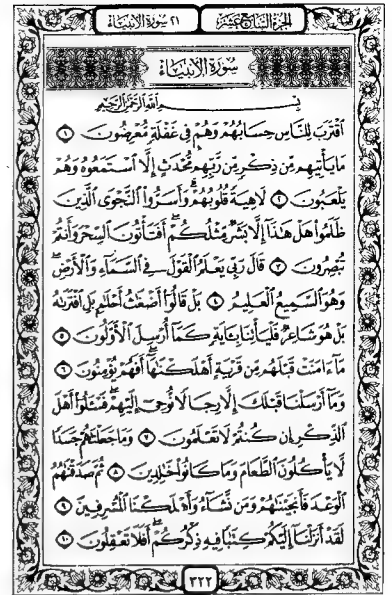 الجزء السابع عشر ٢١ سورة الأنبياء
سورة الأنبياء
بِسْمِ اللَّهِ الرَّحْمَٰنِ الرَّحِيمِ
ٱقْتَرَبَ لِلنَّاسِ حِسَابُهُمْ وَهُمْ فِى غَفْلَةٍ مُّعْرِضُونَ ١
مَا يَأْتِيهِم مِّن ذِكْرٍ مِّن رَّبِّهِم مُّحْدَثٍ إِلَّا ٱسْتَمَعُوهُ وَهُمْ
يَلْعَبُونَ ٢ لَاهِيَةً قُلُوبُهُمْ وَأَسَرُّوا۟ ٱلنَّجْوَى ٱلَّذِينَ
ظَلَمُوا۟ هَلْ هَٰذَآ إِلَّا بَشَرٌ مِّثْلُكُمْ أَفَتَأْتُونَ ٱلسِّحْرَ وَأَنتُمْ
تُبْصِرُونَ ٣ قَالَ رَبِّى يَعْلَمُ ٱلْقَوْلَ فِى ٱلسَّمَآءِ وَٱلْأَرْضِ
وَهُوَ ٱلسَّمِيعُ ٱلْعَلِيمُ ٤ بَلْ قَالُوٓا۟ أَضْغَٰثُ أَحْلَٰمٍۭ بَلِ ٱفْتَرَىٰهُ
بَلْ هُوَ شَاعِرٌ فَلْيَأْتِنَا بِـَٔايَةٍ كَمَآ أُرْسِلَ ٱلْأَوَّلُونَ ٥
مَآ ءَامَنَتْ قَبْلَهُم مِّن قَرْيَةٍ أَهْلَكْنَٰهَآ أَفَهُمْ يُؤْمِنُونَ ٦
وَمَآ أَرْسَلْنَا قَبْلَكَ إِلَّا رِجَالًا نُّوحِىٓ إِلَيْهِمْ فَسْـَٔلُوٓا۟ أَهْلَ
ٱلذِّكْرِ إِن كُنتُمْ لَا تَعْلَمُونَ ٧ وَمَا جَعَلْنَٰهُمْ جَسَدًا
لَّا يَأْكُلُونَ ٱلطَّعَامَ وَمَا كَانُوا۟ خَٰلِدِينَ ٨ ثُمَّ صَدَقْنَٰهُمُ
ٱلْوَعْدَ فَأَنجَيْنَٰهُمْ وَمَن نَّشَآءُ وَأَهْلَكْنَا ٱلْمُسْرِفِينَ ٩
لَقَدْ أَنزَلْنَآ إِلَيْكُمْ كِتَٰبًا فِيهِ ذِكْرُكُمْ أَفَلَا تَعْقِلُونَ ١٠
٣٢٢